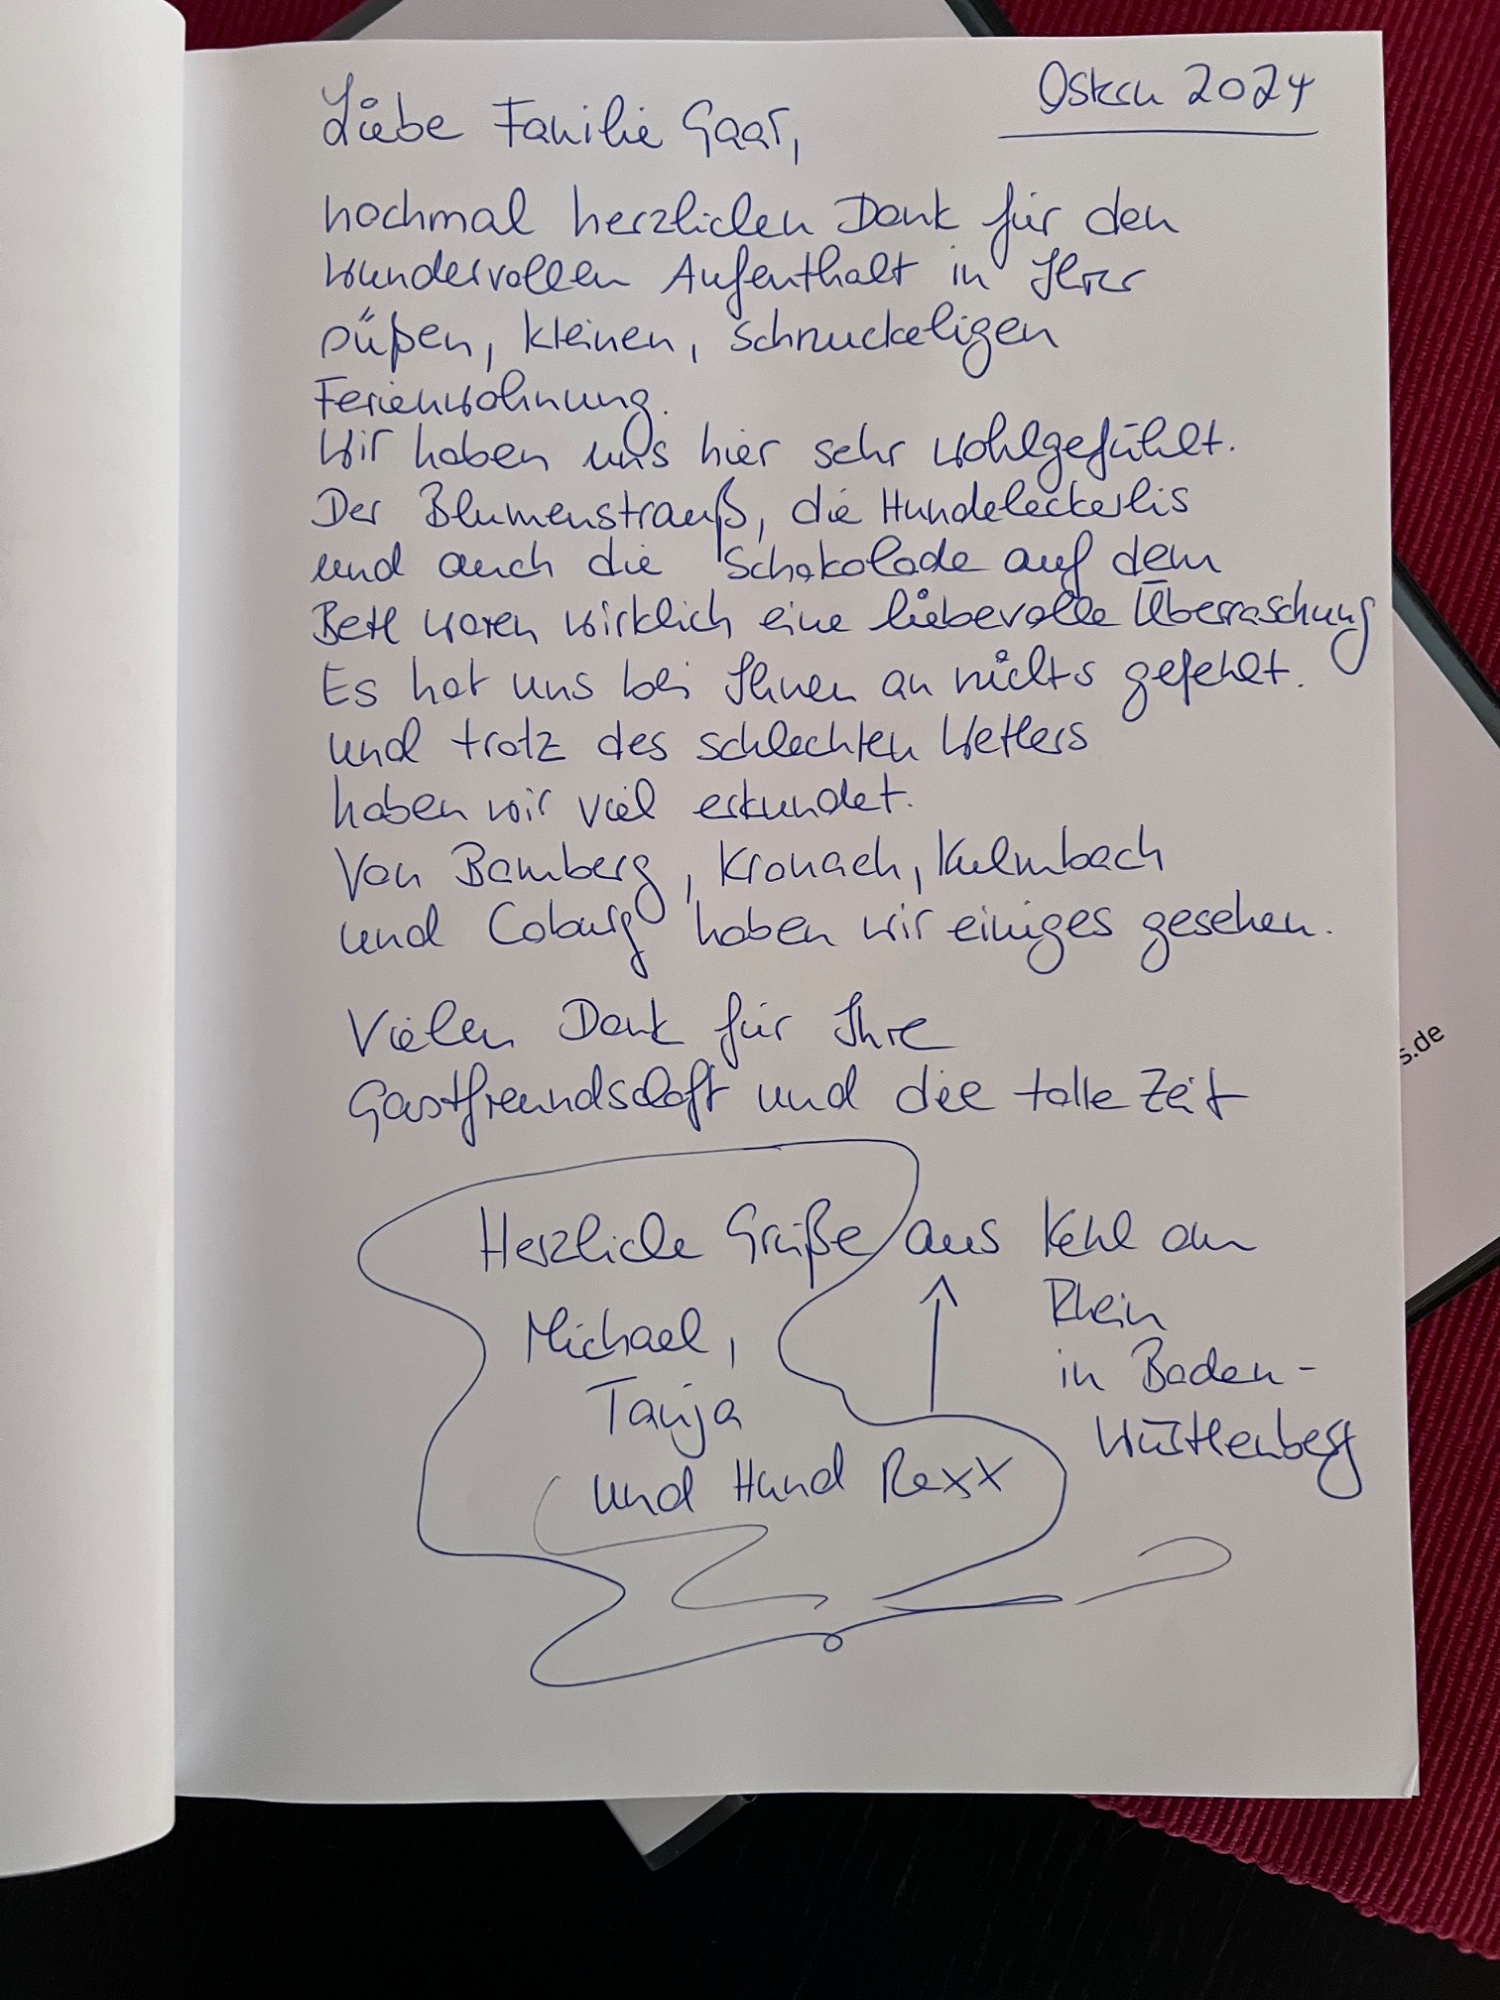 Ostern 2024
Liebe Familie Gaar,
nochmal herzlichen Dank für den
wundervollen Aufenthalt in Ihrer
süßen, kleinen, schnuckeligen
Ferienwohnung.
Wir haben uns hier sehr wohlgefühlt.
Der Blumenstrauß, die Hundeleckerlis
und auch die Schokolade auf dem
Bett waren wirklich eine liebevolle Überraschung
Es hat uns bei Ihnen an nichts gefehlt.
und trotz des schlechten Wetters
haben wir viel erkundet.
Von Bamberg, Kronach, Kulmbach
und Coburg haben wir einiges gesehen.
Vielen Dank für Ihre
Gastfreundschaft und die tolle Zeit
Herzliche Grüße aus Kehl am
Rhein
in Baden-
Württemberg
Michael,
Tanja
und Hund Rexx
s.de